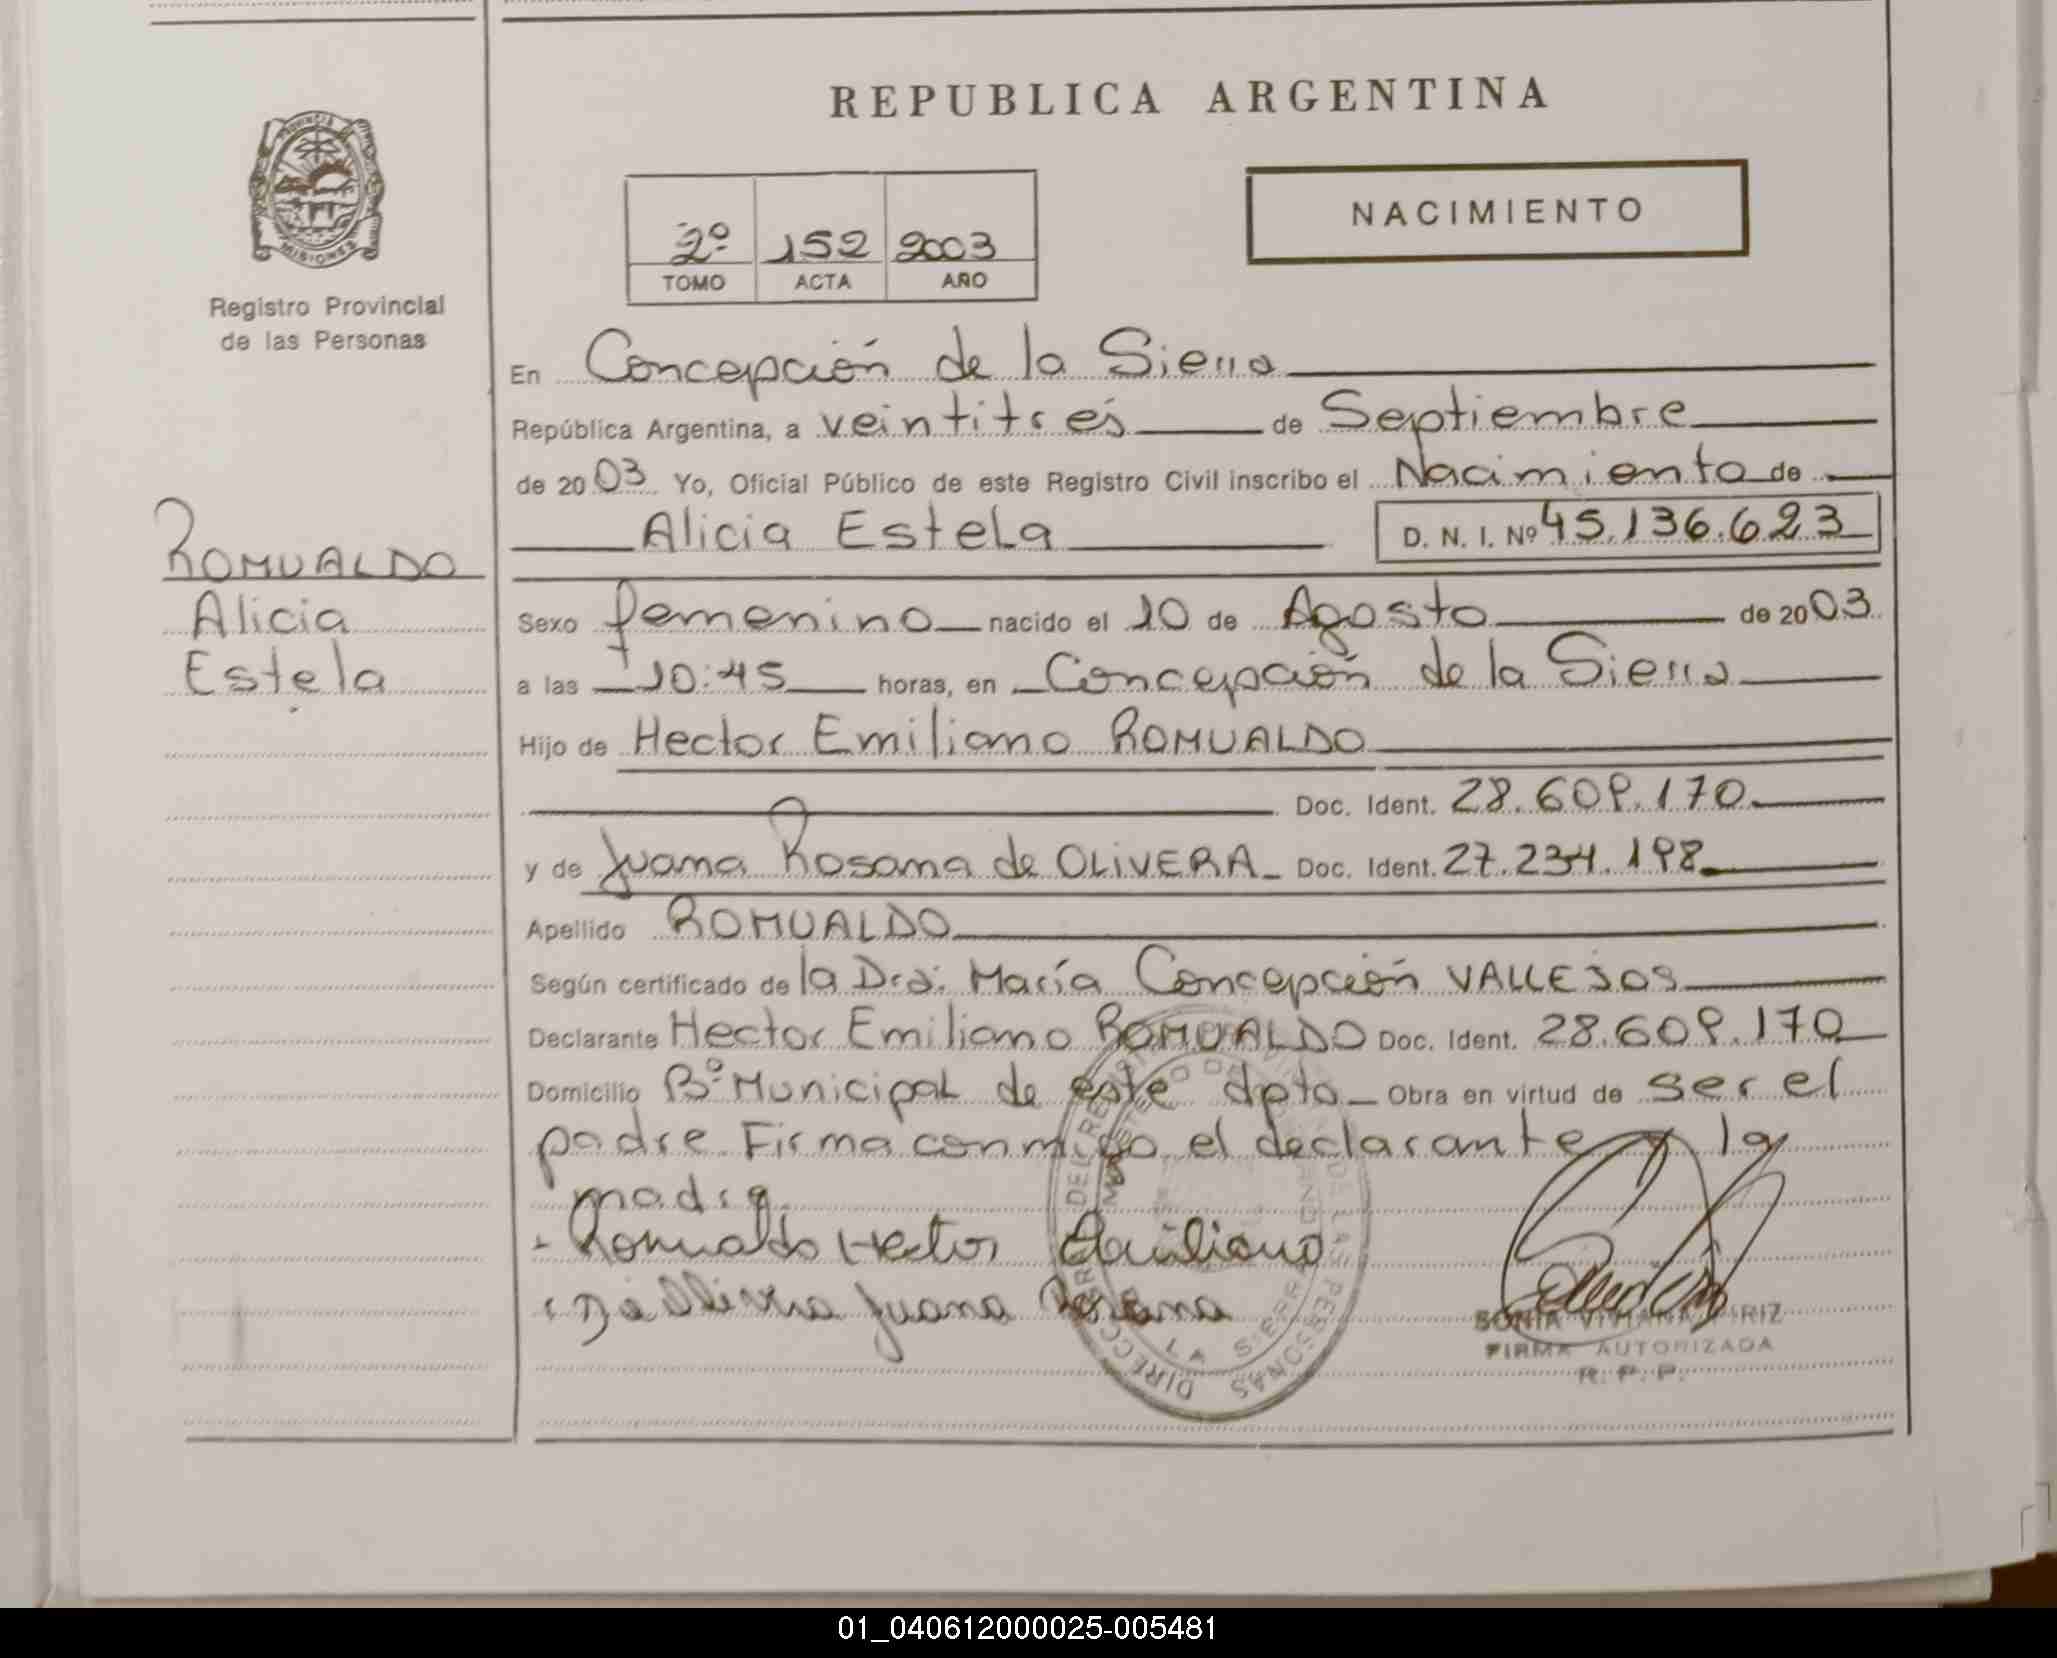 REPUBLICA ARGENTINA
PROVINCIA DE
MISIONES
Registro Provincial
de las Personas
2º 152 2003
TOMO ACTA AÑO
NACIMIENTO
En Concepción de la Sierra
República Argentina, a veintitrés de Septiembre
de 2003 Yo, Oficial Público de este Registro Civil inscribo el Nacimiento de
Alicia Estela D. N. I. Nº 45.136.623
ROMUALDO
Alicia
Estela
Sexo femenino nacido el 10 de Agosto de 2003
a las 10:45 horas, en Concepción de la Sierra
Hijo de Hector Emiliano ROMUALDO
Doc. Ident. 28.609.170
y de Juana Rosana de OLIVERA Doc. Ident. 27.234.198
Apellido ROMUALDO
Según certificado de la Dra. María Concepción VALLEJOS
Declarante Hector Emiliano ROMUALDO Doc. Ident. 28.609.170
Domicilio Bº Municipal de este dpto Obra en virtud de ser el
padre. Firma conmigo el declarante y la
madre.
Romualdo Hector Emiliano
Juana Rosana
SONIA VIVIANA
FIRMA AUTORIZADA
R. P. P.
LA SIERRA
DE LAS PERSONAS
01_040612000025-005481